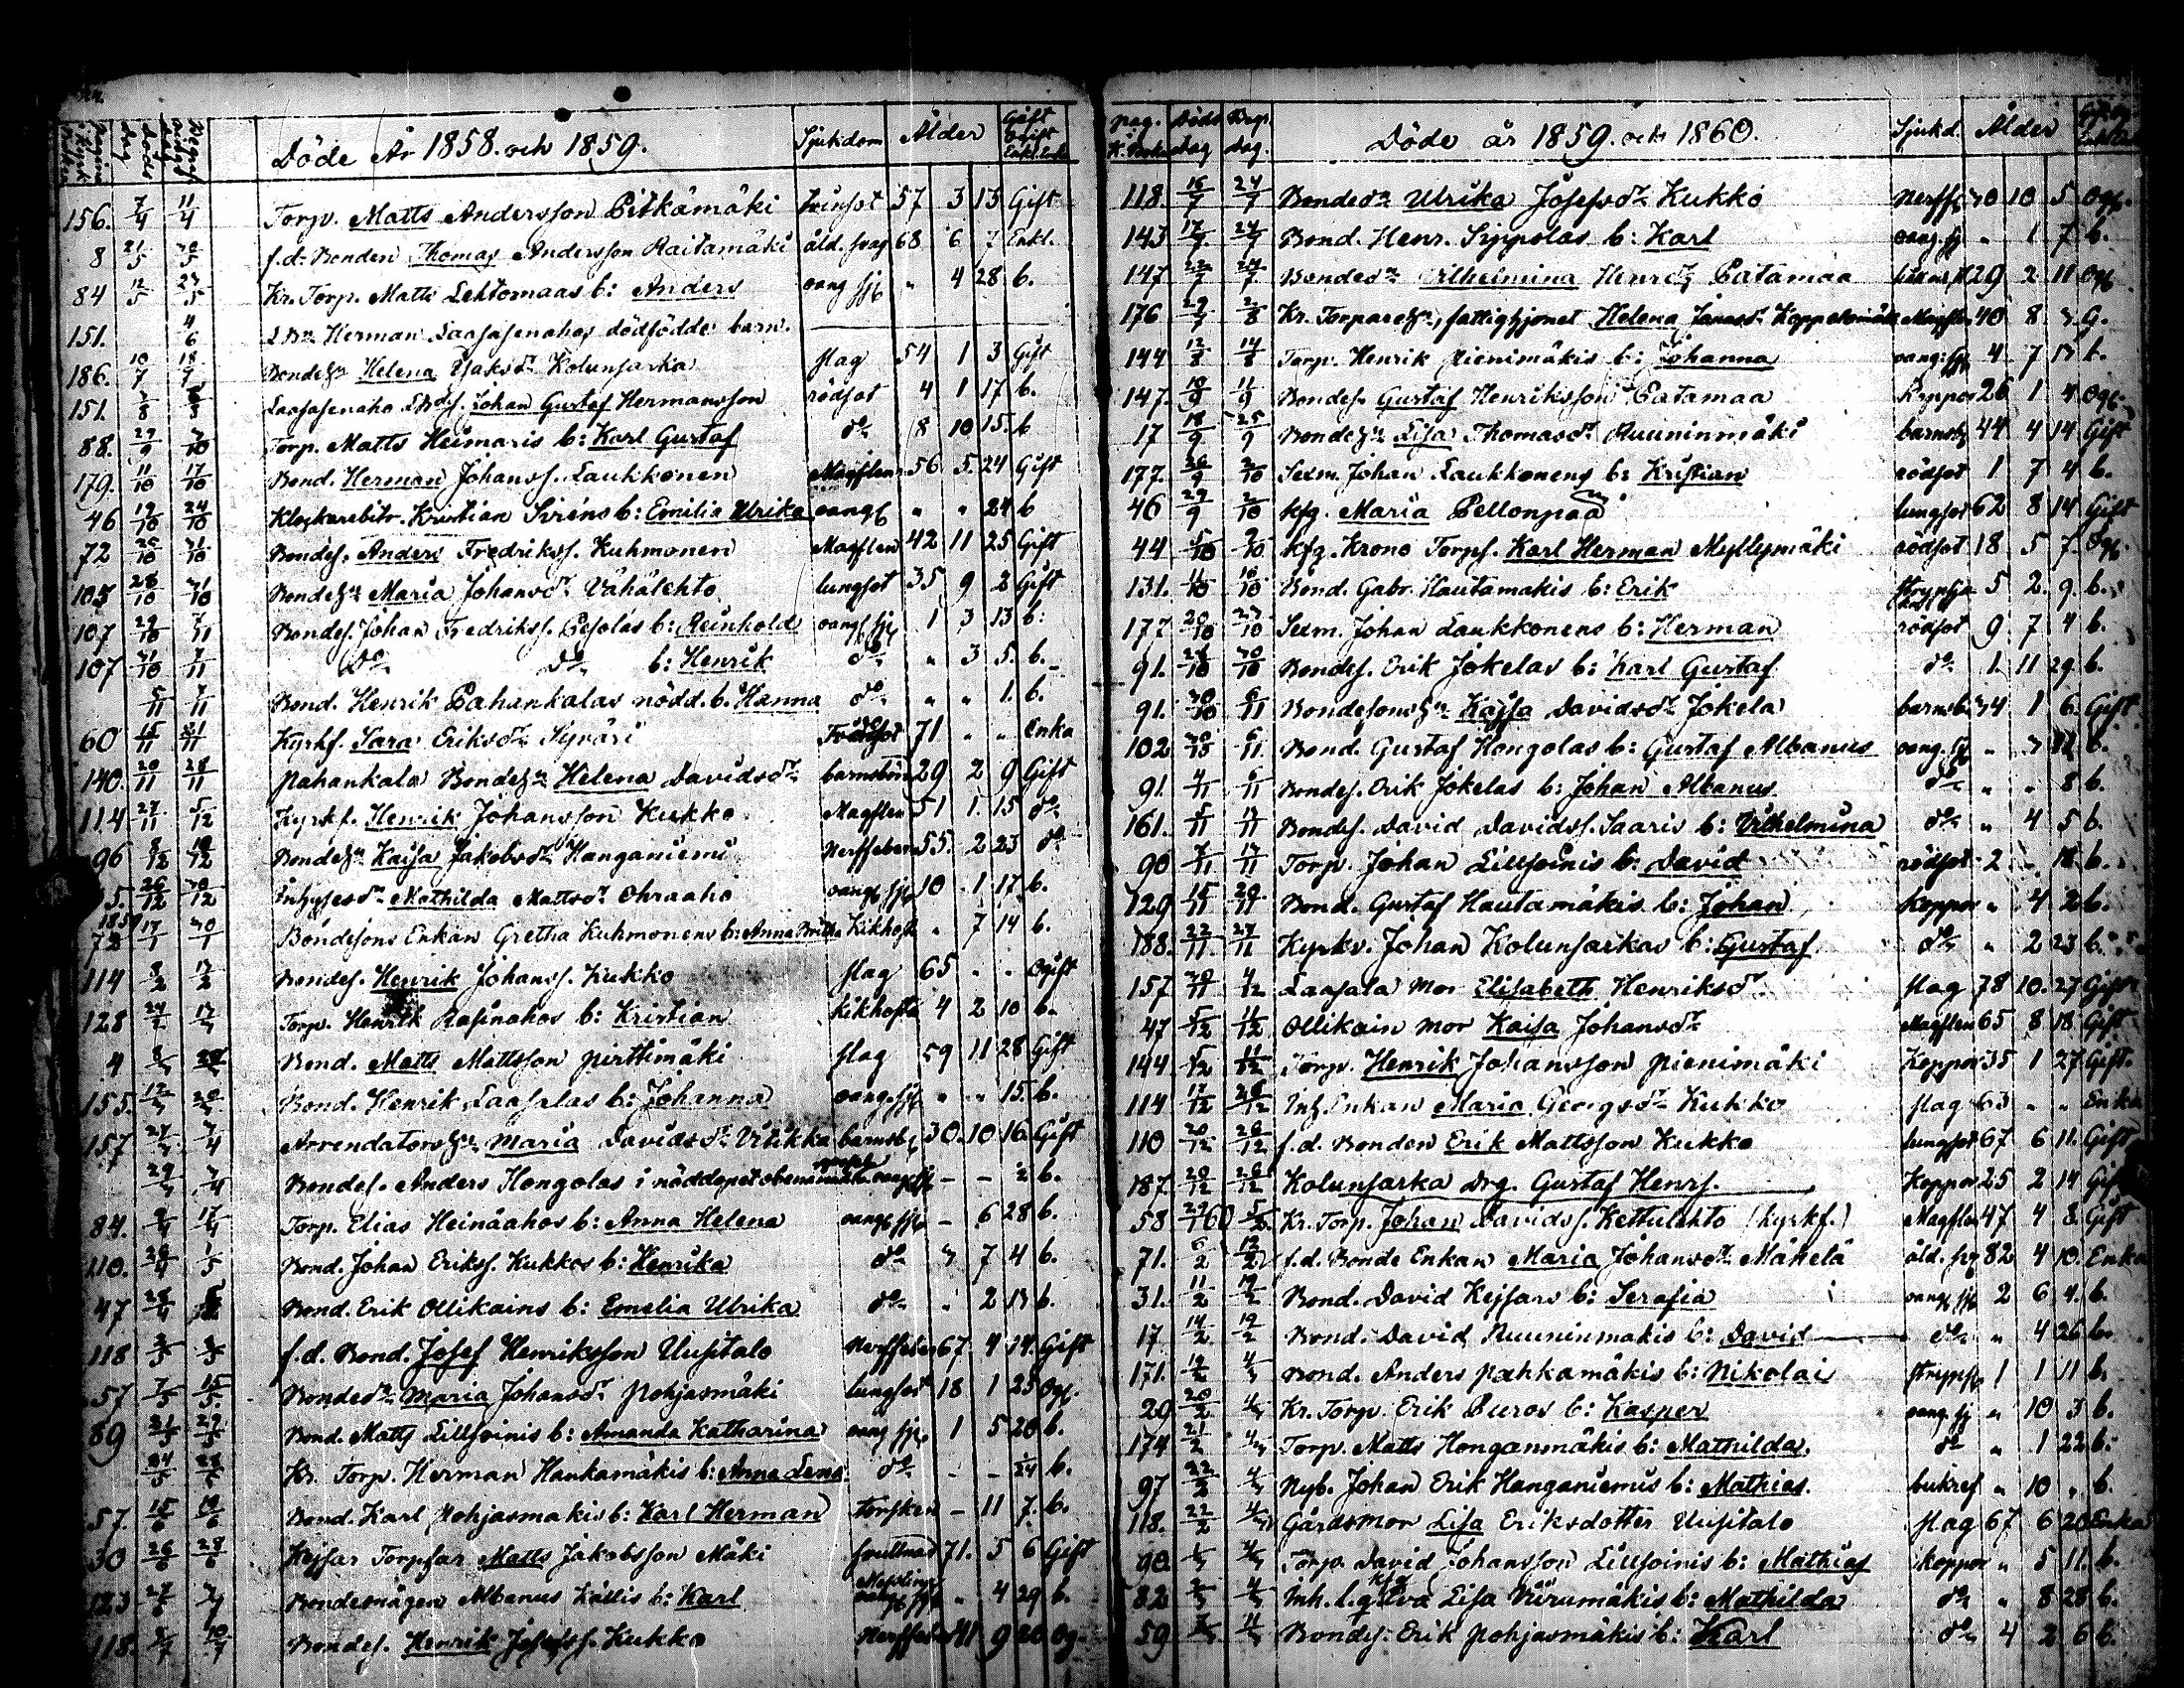 Pagina i Kyrk Boken Döds dag Begrafnings dag Döde År 1858. och 1859. Sjukdom Ålder Gift Ogift Enkl. Enka
156. 7/4 11/4 Torp. Matts Andersson Pitkämäki tvinsot 57 3 13 Gift
8 21/5 30/5 f.d. Bonden Thomas Andersson Raitamäki åld. svag 68 6 7 Enkl.
84 12/5 23/5 Kr. Torp. Matts Lehtomaas b: Anders oang sjk „ 4 28 b.
151. 4/6 Herman Laasasenahos dödfödde barn.
186. 10/7 18/7 Bondehu Helena Isaksdr Kolunsarka slag 54 1 3 Gift
151. Laasasenaho Johan Gustaf Hermansson rödsot 4 1 17 b.
88. 29/9 3/10 Torp. Matts Heimaris b: Karl Gustaf do 8 10 15. b
179. 11/10 17/10 Bond. Herman Johanss. Laukkonen Magflen 56 5. 24 Gift
46 19/10 24/10 Klockarebitr. Kristian Siréns b: Emilia Ulrika oang „ „ 24 b
72 25/10 31/10 Bondes. Anders Fredrikss. Kuhmonen Magflen 42 11 25 Gift
105 28/10 31/10 Bondehu Maria Johansdr Vähälehto lungsot 35 9 2 Gift
107 29/10 7/11 Bondes. Johan Fredrikss. Pesolas b: Reinhold oang sjk 1 3 13 b:
107 31/10 7/11 Do Do b: Henrik do „ 3 5. b.
5/11 7/11 Bond. Henrik Pahankalas nödd. b. Hanna do „ „ 1. b.
60 15/11 21/11 Kyrkf. Sara Eriksdr Syväri 71 „ „ Enka
140. 20/11 28/11 Pahankala Bondehu Helena Davidsdr barnsbörd 29 2 9 Gift
114 27/11 5/12 Kyrkf. Henrik Johansson Kukko Magflen 51 1. 15 do
96 8/12 19/12 Bondehu Kaisa Jakobsdr Hanganiemi Nerffebern 55. 2 23 do
5. 26/12 30/12 Inhysesdr Mathilda Mattsdr Ohraaho oang sjk 10 1 17. b.
1859
72 17/1 30/1 Bondesons Enkan Gretha Kuhmonens b: Anna Britha Kikhosta „ 7 14 b.
114 8/2 13/2 Bondes. Henrik Johanss. Kukko slag 65 „ „ Ogift
128 Torp. Henrik Rasinahos b: Kristian Kikhosta 4 2 10 b.
4 Bond. Matts Mattsson Pirttimäki slag 59 11 28 Gift
155. Bond. Henrik Laasalas b: Johanna oang. sjk „ „ 15. b.
157 27/3 3/4 Arrendatorshu Maria Davidsdr Vitikka barnsb. 30. 10 16 Gift
29/3 3/4 Bondes. Anders Hongolas i nöddopet obenämnda oang sjk – – ½ b.
84. 9/4 17/4 Torp. Elias Heinäahos b: Anna Helena oang sjk – 6 28 b.
110. 26/4 1/5 Bond. Johan Erikss. Kukkos b: Henrika do 3 7 4 b.
47 28/4 Bond. Erik Ollikains b: Emelia Ulrika do „ 2 13 b.
118 f.d. Bond. Josef Henriksson Uusitalo Nerffeber 67. 4 14. Gift
57 7/5 15/5 Bondedr Maria Johansdr Pohjasmäki lungsot 18 1 25 Ogf.
89 21/5 29/5 Bond. Matts Lillsoinis b: Amanda Katharina oang sjk 1 5 20 b.
24/5 29/5 Kr. Torp. Herman Haukamäkis b: Anna Lena do – – 1/24 b.
57. 15/6 19/6 Bond. Karl Pohjasmäkis b: Karl Herman torsken – 11 7. b.
30 26/6 28/6 Kejsar Torpfar Matts Jakobsson Mäki svullnad 71. 5 6 Gift
123 27/6 3/7 Bondemågen Albanus Källis b: Karl oang sjk „ 4 29 b.
118. 10/7 Bondes. Henrik Josefss. Kukko Nerffeber 41 9 20 Og.
pag. K. Boken Döds dag Begr. dag. Döde år 1859. och 1860. Sjukd. Ålder
118. 16/7 24/7 Bondedr Ulrika Josefsdr Kukko Nerffb 30 10 5 Ogf.
143 17/7 24/7 Bond. Henr. Sippolas b: Karl oang. sj „ 1 7 b.
147. 22/7 24/7 Bondedr Vilhelmina Henrdr Patamaa 29 2 11 Ogf
176 29/7 2/8 Kr. Torparehu, fattighjonet Helena Jonasdr Koppelomäki Magflen 40 8 3 G.
144 12/8 14/8 Torp. Henrik Pienimäkis b: Johanna oang. sjk 4 7 13 b.
147. 10/9 11/9 Bondes. Gustaf Henriksson Patamaa Koppor 26 1 4 Ogf.
17 18/9 25/9 Bondehu Lisa Thomasdr Ruuninmäki barnsb 44 4 14 Gift
177. 26/9 2/10 Sexm. Johan Laukkonens b: Kristian rödsot 1 7 4 b.
46 29/9 2/10 Kfg. Maria Pellonpää lungsot 62 8 14 Gift
44 5/10 9/10 Kfg. Krono Torps. Karl Herman Myllymäki rödsot 18 5 7. Ogf.
131. 11/10 16/10 Bond. Gabr. Hautamäkis b: Erik strypsju 5 2. 9. b.
177 20/10 23/10 Sexm. Johan Laukkonens b: Herman rödsot 9 7 4 b.
91. 28/10 30/10 Bondes. Erik Jokelas b: Karl Gustaf do 1. 11 29. b.
91. 30/10 6/11 Bondesonshu Kajsa Davidsdr Jokela barnsb. 34 1 6. Gift
102 30/10 6/11 Bond. Gustaf Hongolas b: Gustaf Albanus oang. sj „ 3 b.
91. 4/11 6/11 Bondes. Erik Jokelas b: Johan Albanus do „ „ 8 b.
161. 5/11 13/11 Bondes. David Davidss. Saaris b: Vilhelmina do „ 4 5 b.
90 7/11 13/11 Torp. Johan Lillsoinis b: David rödsot 2 – 18 b.
129 15/11 20/11 Bond. Gustaf Hautamäkis b: Johan koppor „ 4 2 b.
188. 22/11 27/11 Kyrkv. Johan Kolunsarkas b: Gustaf do „ 2 23 b.
157 30/11 4/12 Laasala Mor Elisabeth Henriksdr slag 78 10. 27 Gift
47 5/12 11/12 Ollikain mor Kaisa Johansdr Magflen 65 8 18 Gift
144 5/12 11/12 Torp. Henrik Johansson Pienimäki Koppor 35 1 27 Gift.
114 17/12 26/12 Inh. Enkan Maria Georgsdr Kukko slag 63 „ „ Enka
110 20/12 26/12 f.d. Bonden Erik Mattsson Kukko lungsot 67 6 11. Gift
187. 20/12 26/12 Kolunsarka drg. Gustaf Henrs. Koppor 25 2 14 Gift
58 29/1 60 5/2 Kr. Torp. Johan Davidss. Kettulehto (kyrkf.) Magflen 47 4 8 Gift
71. 6/2 12/2 f.d. Bonde Enkan Maria Johansdr Mäkelä åld. sv 82 4 10. Enka
31. 11/2 19/2 Bond. David Kejsars b: Serafia oang sjk 2 6 4. b.
17 14/2 19/2 Bond. David Ruuninmäkis b: David do „ 4 26 b.
171. 19/2 4/3 Bond. Anders Pahkamäkis b: Nikolai strypsj. 1 1 11 b.
29 20/2 4/3 Kr. Torp. Erik Puros b: Kasper oang. sj „ 10 3 b.
174 21/2 4/3 Torp. Matts Honganmäkis b: Mathilda do „ 1 22 b.
97 22/2 4/3 Nyb. Johan Erik Hanganiemis b: Mathias. bukref „ 10 „ b.
118. 22/2 4/3 Gårdsmor Lisa Eriksdotter Uusitalo slag 67 6 20 Enka
90. 1/3 4/3 Torp. David Johansson Lillsoinis b: Mathias koppor „ 5 11. b.
82 4/3 Inh. l. q. Eva Lisa Viirumäkis b: Mathilda do „ 8 28 b.
59 Bondes. Erik Pohjasmäkis b: Karl do 4 2 6 b.